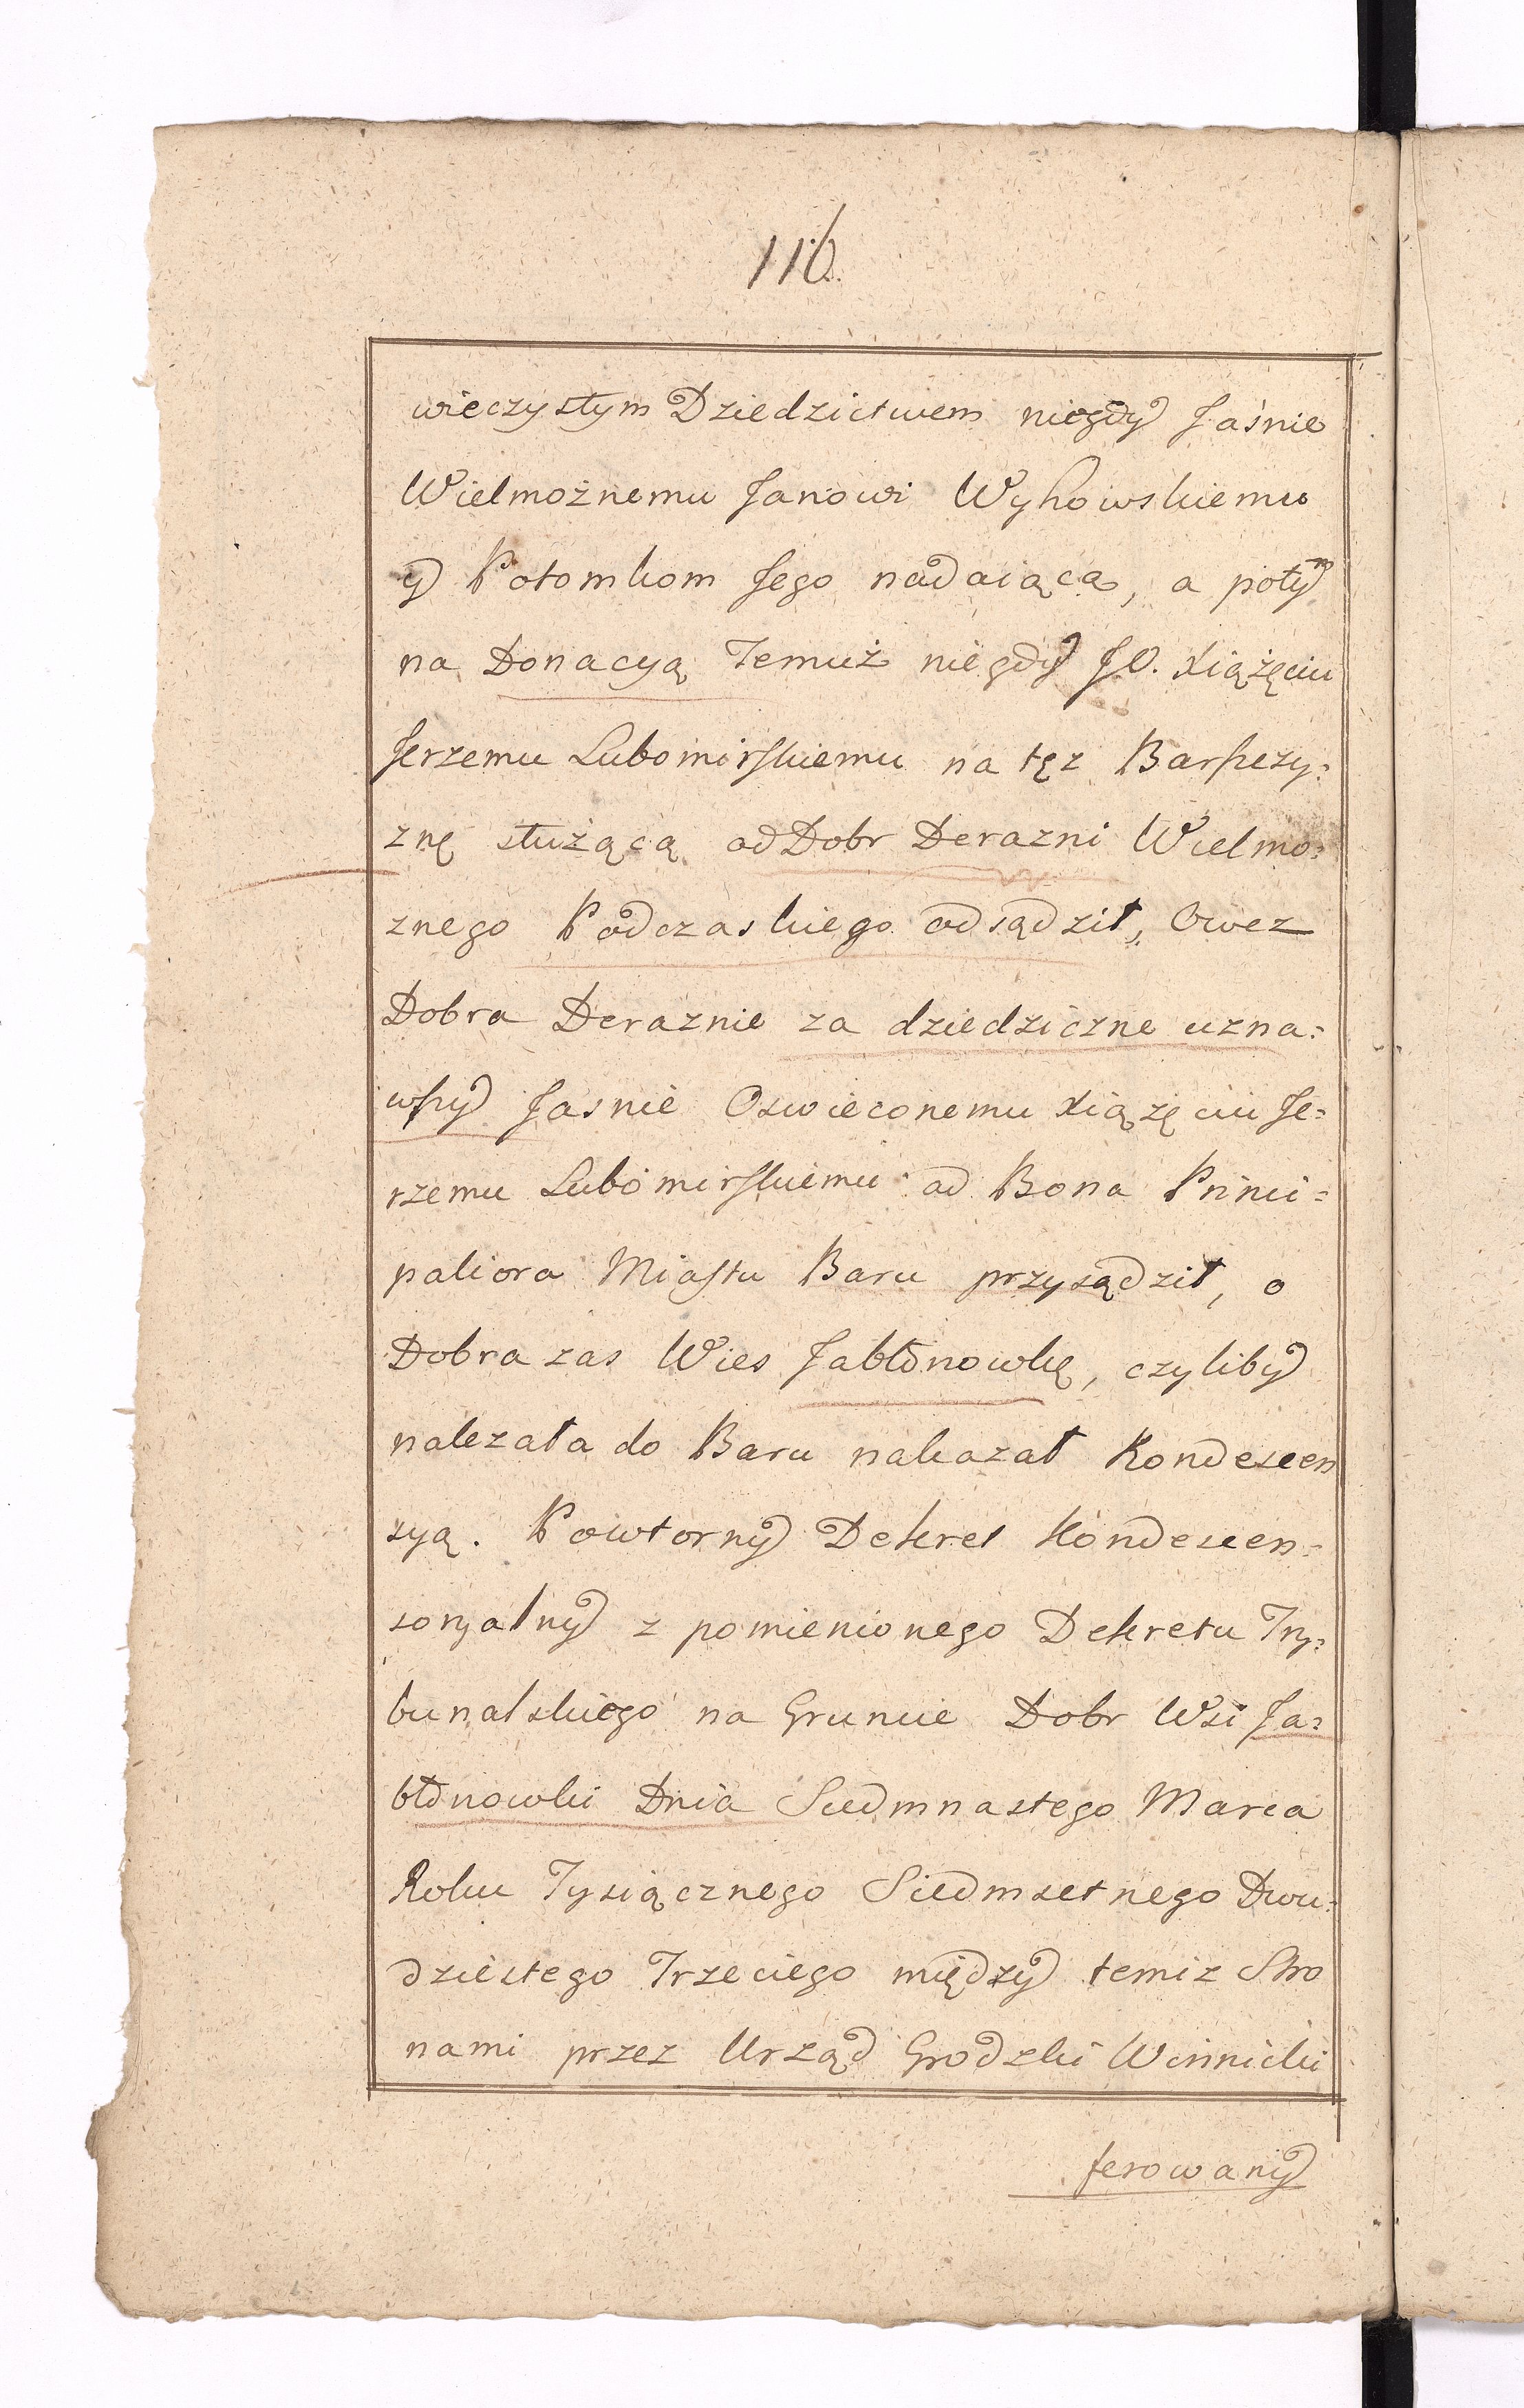 116.
wieczystym Dziedzictwem niegdy Jaśnie
Wielmożnemu Janowi Wyhowskiemu
y Potomkom Jego nadaiącą, a potym
na Donacyą Temuż niegdy JO. Xiążęciu
Jerzemu Lubomirskiemu na tęz Barszczy=
znę służącą od Dobr Derazni Wielmo=
znego Podczaskiego odsądził, Owez
Dobra Deraznie za dziedziczne uzna=
wszy Jasnie Oswieconemu Xiązęciu Je=
rzemu Lubomirskiemu ad Bona Princi=
paliora Miastu Baru przysądził, o
Dobra zas Wies Jabłonowkę, czyliby
nalezała do Baru nakazał Kondescen
syą. Powtorny Dekret Kondescen=
soryalny z pomienionego Dekretu Try=
bunalskiego na Gruncie Dobr Wsi Ja=
błonowki Dnia Siedmnastego Marca
Roku Tysiącznego Siedmsetnego Dwu=
dziestego Trzeciego między temiz Stro
nami przez Urząd Grodzki Winnicki
ferowany